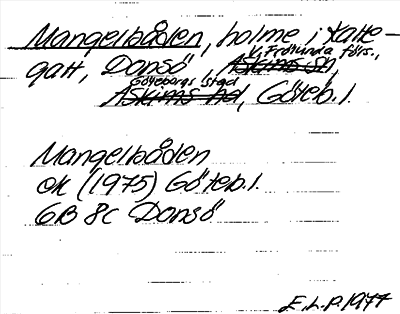 Mangelbåden, holme i Katte-
gatt, Donsö, V. Frölunda förs.,
Askims sn,
Göteborgs stad
Askims hd, Göteb. l.
Mangelbåden
ek (1975) Göteb. l.
6B 8c Donsö
E.L.P. 1977